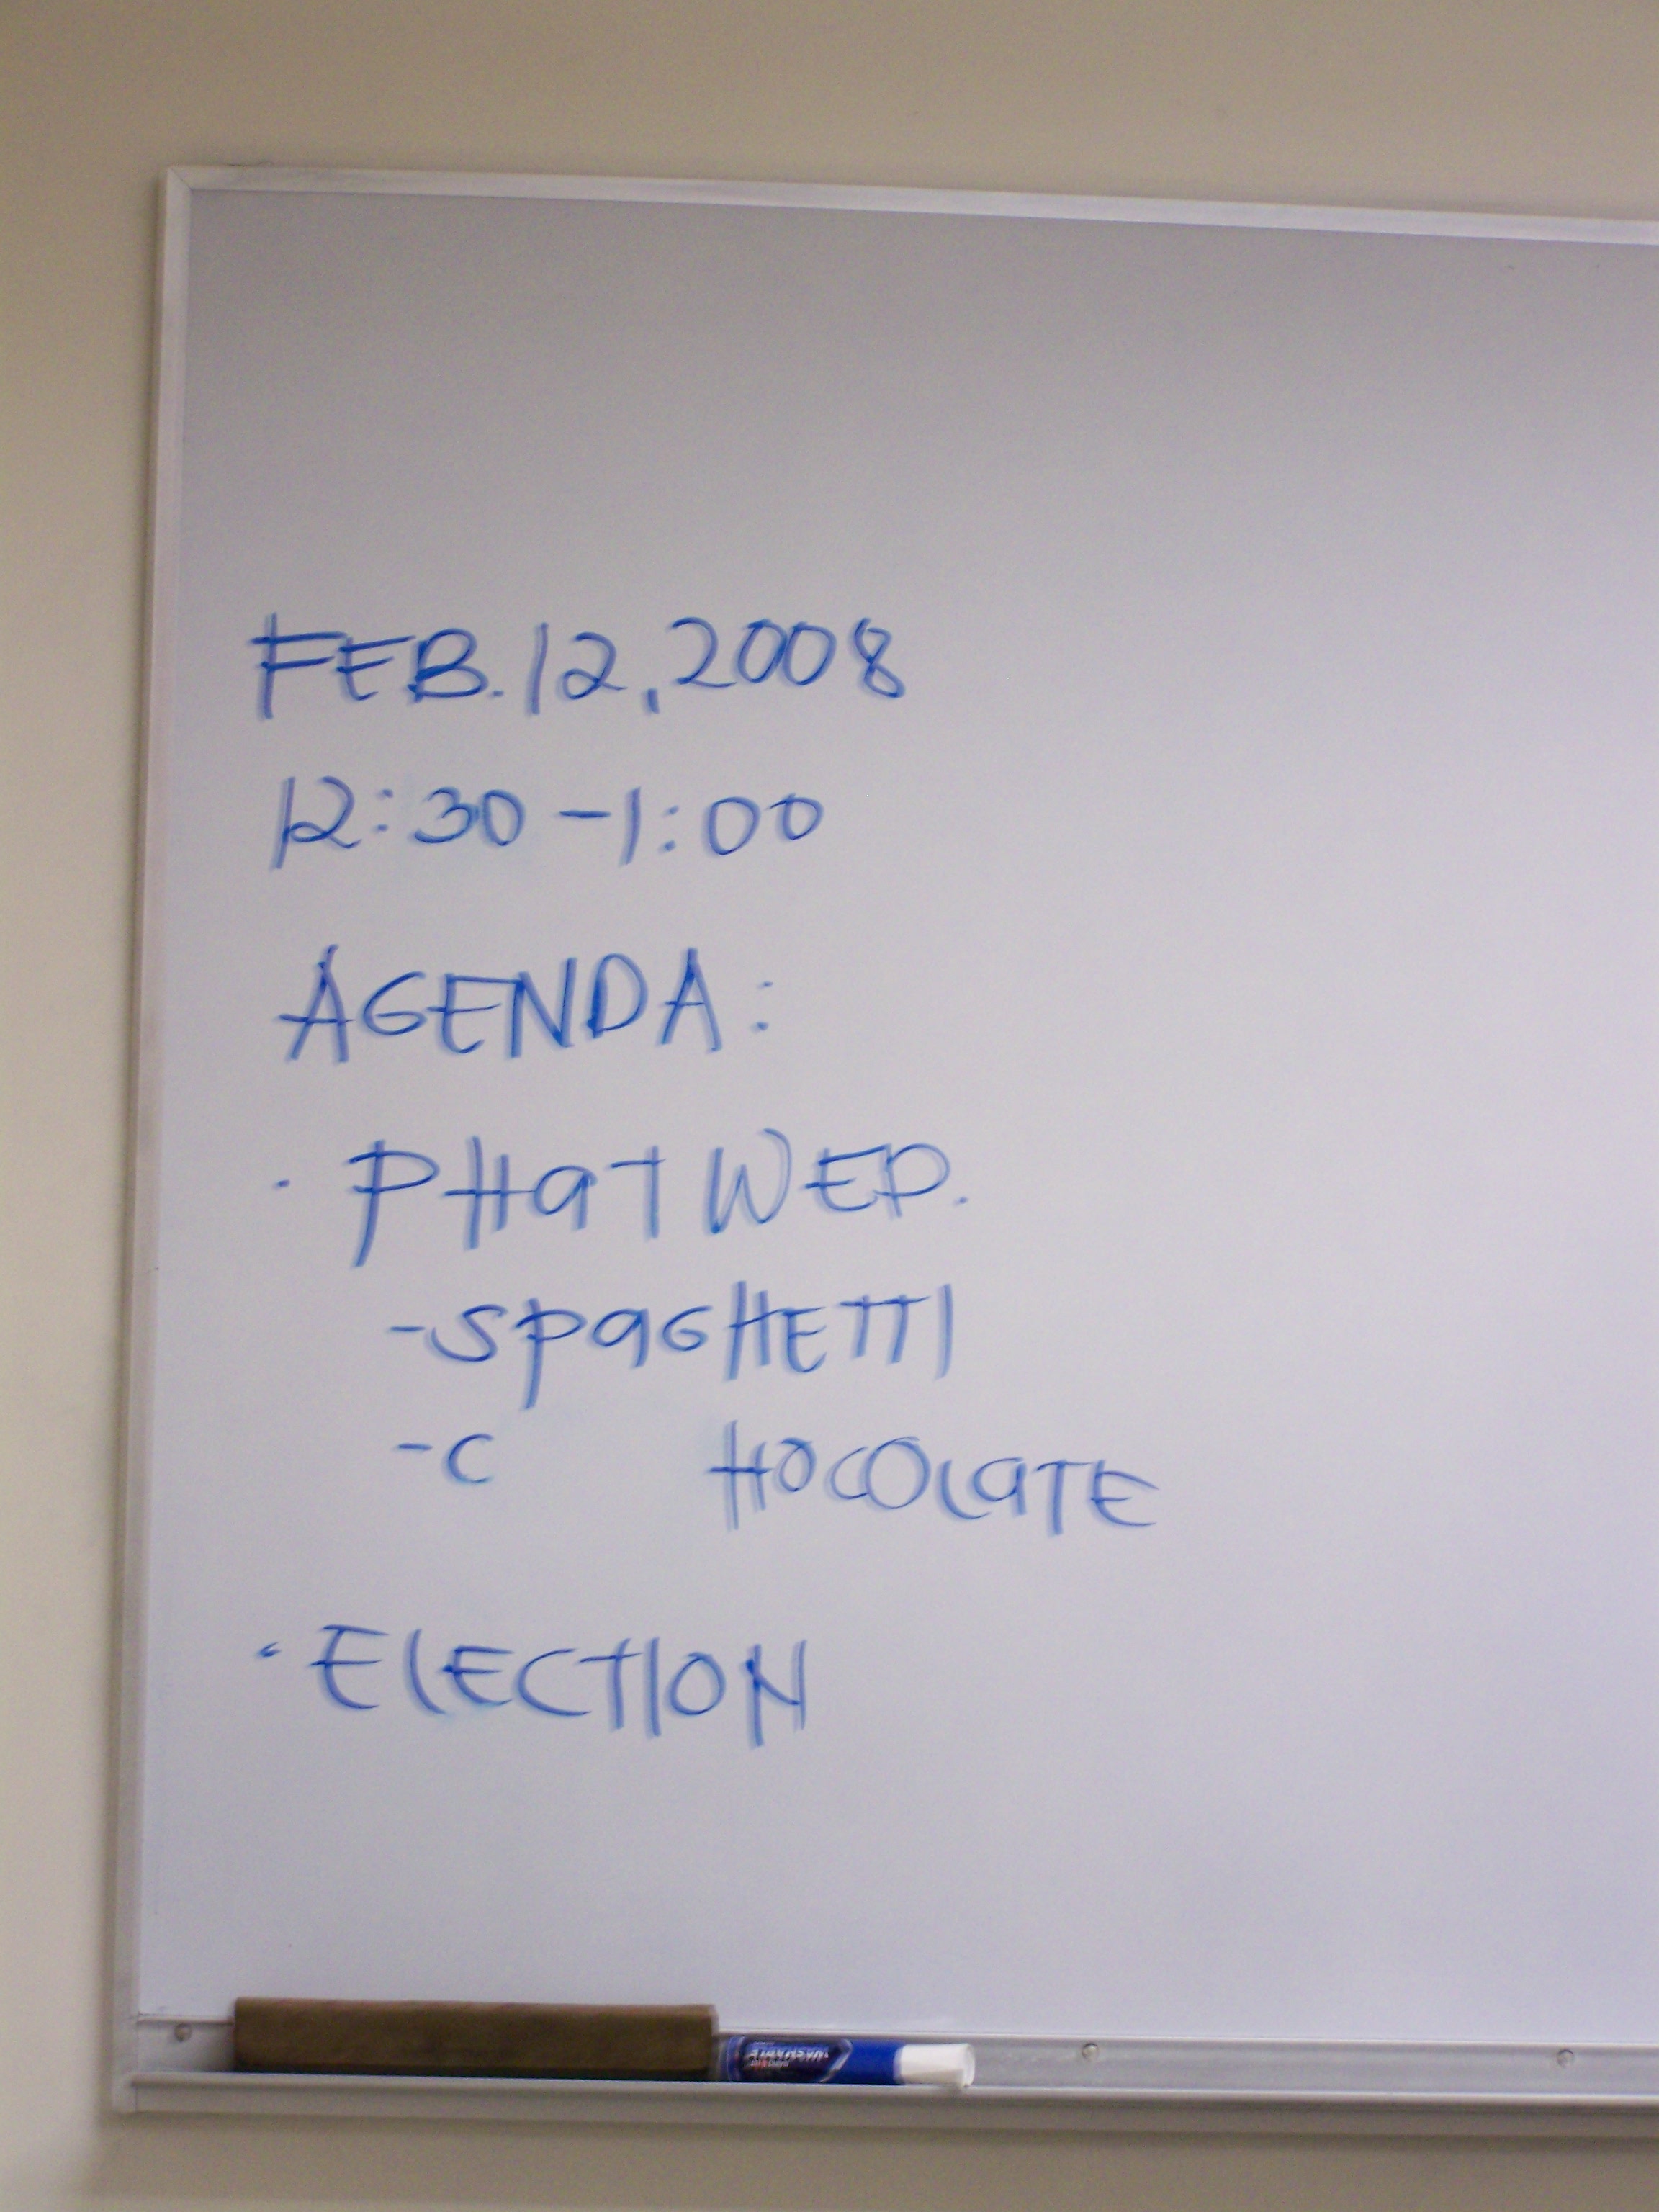 FEB. 12, 2008
12:30 - 1:00
AGENDA:
· PHaT WED.
- SPaGHETTI
- C HOCOLaTE
· ELECTION
WASHABLE